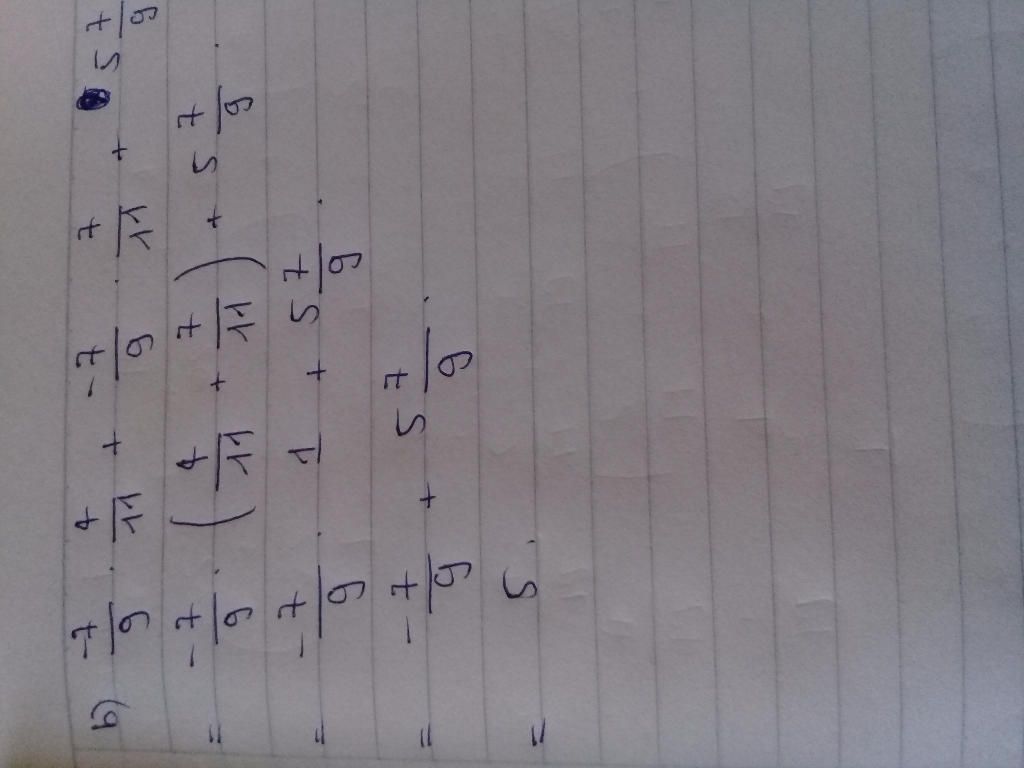 b) -7/9 . 4/11 + -7/9 . 7/11 + 5 7/9
= -7/9 . ( 4/11 + 7/11 ) + 5 7/9 .
= -7/9 . 1 + 5 7/9 .
= -7/9 + 5 7/9 .
= 5 .